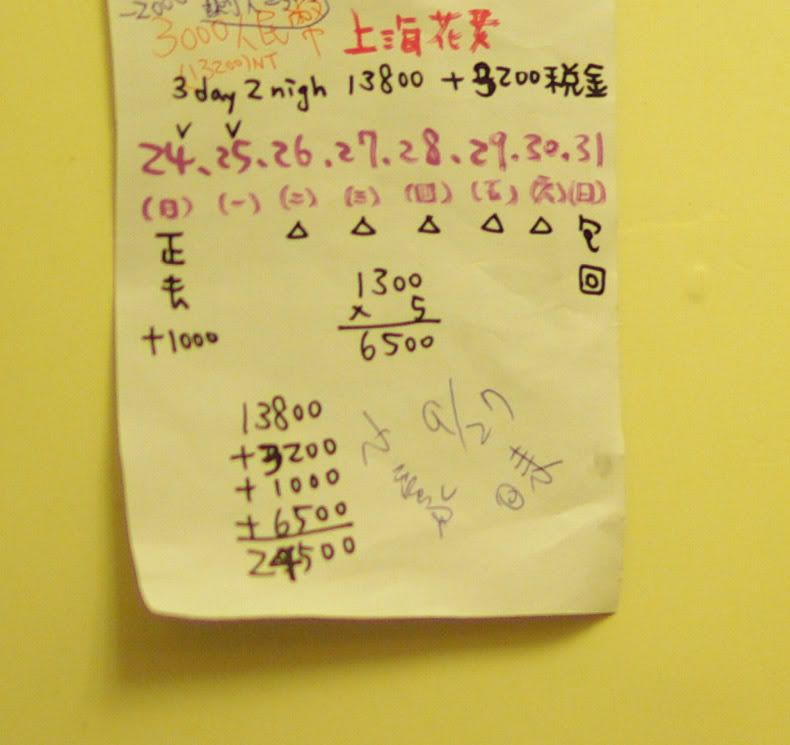 -2000
3000人民币 上海花費
(13200)NT
3day 2nigh 13800 + 3200税金
24、25、26、27、28、29、30、31
(日) (一) (二) (三) (四) (五) (六) (日)
正 △ △ △ △ △
去 回
+1000
1300
x 5
6500
13800
+3200
+1000
+6500
24500
9/27